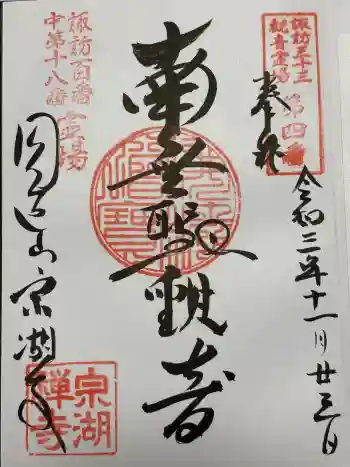 諏訪三十三
観音霊場
第四番
奉拝
令和三年十一月廿三日
南無聖観音
諏訪百番
中第十八番霊場
山宗湖寺
宗湖
禅寺